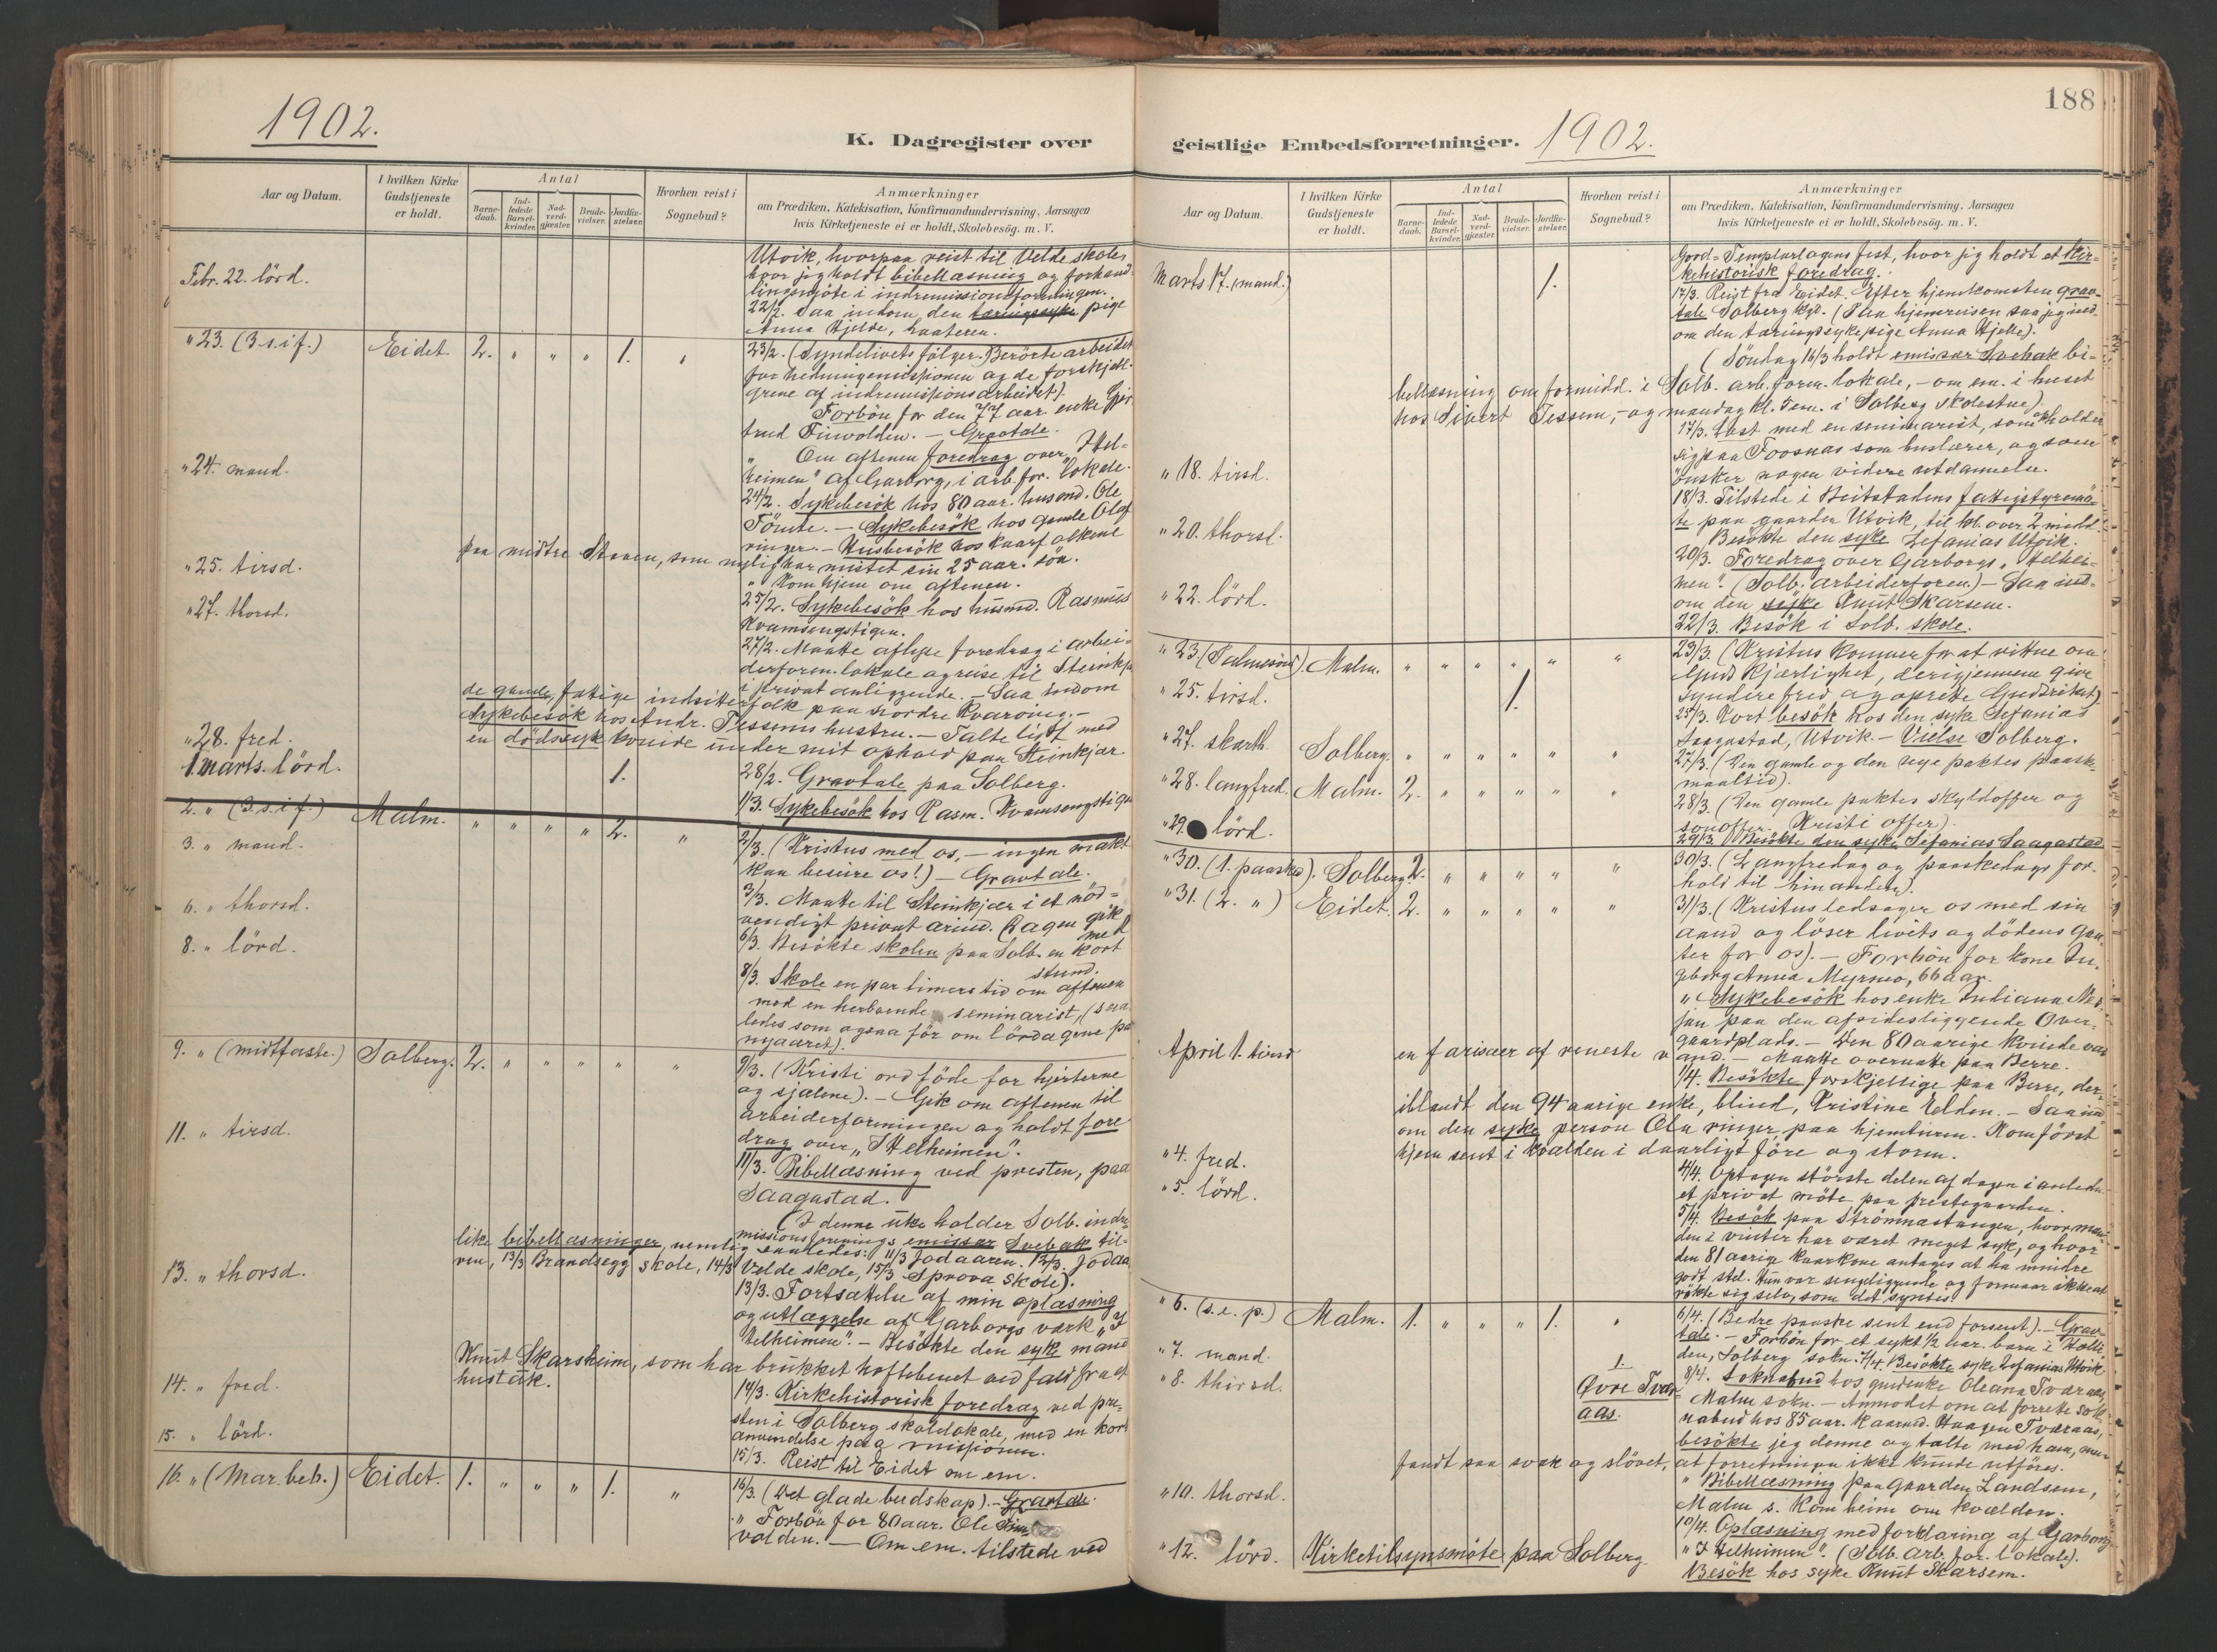 1902.
K. Dagregister over
Aar og Datum.
I hvilken Kirke Gudstjeneste er holdt.
Antal
Barne-daab.
Ind-ledede Barsel-kvinder.
Nad-verd-gjæster.
Brude-vielser.
Jordfæ-stelser.
Hvorhen reist i Sognebud?
Anmærkninger
om Prædiken, Katekisation, Konfirmandundervisning, Aarsagen
hvis Kirketjeneste ei er holdt, Skolebesøg. m. V.
Utvik, hvorpaa reist til Velde skole,
Febr. 22. lörd.
hvor jeg holdt bibellæsning og forhand-
lingsmöte i indremissionsforeningen.
22/2. Saa indom den tæringssyke pige
Anna Hjelde,
" 23. (3 s. i f.) Eidet. 2. " " " 1. "
23/2. (Syndelivets fölger. Berörte arbeidet
for hedningemissionen og de forskjell.
grene af indremissionsarbeidet).
Forbön for den 77 aar. enke Gjer
trud Finvolden. — Gravtale.
" Om aftenen foredrag over "Hel-
" 24. mand.
heimen" af Garborg, i arb. for. lokale.
24/2. Sykebesök hos 80 aar. husmd. Ole
Tömte. — Sykebesök hos gamle Olaf
ringer. — Husbesök hos kaarfolkene
paa midtre Staven, som nylig har mistet sin 25 aar. sön.
" 25. tirsd.
" Kom hjem om aftenen.
" 27. thorsd.
25/2. Sykebesök hos husmd. Rasmus
Kvamsengstigen.
27/2. Maatte aflyse foredrag i arbei-
derforen. lokale og reise til Steinkjær
i privat anliggende. — Saa indom
de gamle, fattige indsitterfolk paa nordre Kvarving. —
Sykebesök hos Andr. Tessems hustru. — Talte litt med
" 28. fred.
en dödssyk kvinde under mit ophold paa Steinkjær.
1 marts. lörd. 1.
28/2. Gravtale paa Solberg.
1/3. Sykebesök hos Rasm. Kvamsengstigen
2. " (3. s. i f.) Malm. " " " " 2. "
2/3. (Kristus med os, — ingen makt
3. " mand.
kan beseire os!) — Gravtale.
3/3. Maatte til Steinkjær i et nöd-
6. " thorsd.
vendigt privat ærind. Dagen gik med
6/3. Besökte skolen paa Solb. en kort
8. " lörd.
stund.
8/3. Skole en par timers tid om aftenen
med en herboende seminarist, (saa
ledes som ogsaa för om lördagene paa
nyaaret).
9. " (midtfaste.) Solberg. 2. " " " " "
9/3. (Kristi ord föde for hjerterne
og sjælene). — Gik om aftenen til
arbeiderforeningen og holdt fore
11. " tirsd.
drag over "I Helheimen".
11/3. Bibellæsning ved presten, paa
Saagastad.
(I denne uke holder Solb. indre
missionsforenings emissær Svebak til-
like bibellæsninger, nemlig saaledes: 11/3 Jodaaren. 12/3. Jodaa
ren, 13/3 Brandsegg skole, 14/3 Velde skole, 15/3 Sprova skole).
13. " thorsd.
13/3. Fortsættelse af min oplæsning
og utlæggelse af Garborgs værk "I
Helheimen". — Besökte den syke mand
Knut Skarsheim, som har brukket hoftebenet ved fald fra et
hustak.
14. " fred.
14/3. Kirkehistorisk foredrag ved pre-
sten i Solberg skolelokale, med en kort
15. " lörd.
anvendelse paa missionen.
15/3. Reist til Eidet om em.
16. " (Mar. beb.) Eidet. 1. " " " 1. "
16/3. (Det glade budskap). — Gravtale.
" Forbön for 80 aar. Ole Fin-
volden. — Om em. tilstede ved
188
geistlige Embedsforretninger. 1902.
Aar og Datum.
I hvilken Kirke Gudstjeneste er holdt.
Antal
Barne-daab.
Ind-ledede Barsel-kvinder.
Nad-verd-gjæster.
Brude-vielser.
Jordfæ-stelser.
Hvorhen reist i Sognebud?
Anmærkninger
om Prædiken, Katekisation, Konfirmandundervisning, Aarsagen
hvis Kirketjeneste ei er holdt, Skolebesøg. m. V.
Good-Templarlagens fest, hvor jeg holdt et kir-
Marts 17. (mand.) 1.
kehistorisk foredrag.
17/3. Reist fra Eidet. Efter hjemkomsten grav-
tale Solberg kgd. (Paa hjemreisen saa jeg ind-
om den tæringssyke pige Anna Hjelde).
(Söndag 16/3 holdt emissær Svebak bi-
bellæsning om formidd. i Solb. arb. foren. lokale, — om em. i huset
hos Sivert Tessem, — og mandag kl. 5 em. i Solberg skolestue).
17/3. Læst med en seminarist, som opholder
sig paa Foosnæs som huslærer, og som
" 18. tirsd.
önsker nogen videre utdannelse.
18/3. Tilstede i Beitstadens fattigstyremö-
te paa gaarden Utvik, til kl. over 2 midd.
" 20. thorsd.
Besökte den syke Zefanias Utvik.
20/3. Foredrag over Garborgs "Helhei-
men". (Solb. arbeiderforen.) — Saa ind-
" 22. lörd.
om den syke Knut Skarsem.
22/3. Besök i Solb. skole.
" 23. (Palmesönd.) Malm. " " " " " "
23/3. (Kristus kommer for at vittne om
Guds kjærlighet, derigjennem give
" 25. tirsd. 1.
syndere fred og oprette Gudsriket).
25/3. Kort besök hos den syke Sefanias
Saagastad, Utvik. — Vielse Solberg.
" 27. skærth. Solberg. " " " " " "
27/3. (Den gamle og den nye paktes paask-
maaltid).
" 28. langfred. Malm. 2. " " " " "
28/3. (Den gamle paktes skyldoffer og
sonoffer. Kristi offer).
" 29. lörd.
29/3. Besökte den syke Sefanias Saagastad.
" 30. (1. paasked). Solberg. 2. " " " " "
30/3. (Langfredag og paaskedags for-
hold til hinanden).
" 31. (2. ") Eidet. 2. " " " " "
31/3. (Kristus ledsager os med sin
aand og löser livets og dödens gaa-
ter for os). — Forbön for kone In-
geborg Anna Myrmo, 66 aar.
" Sykebesök hos enke Indiana
paa den afsidesliggende Over-
gaardplads. — Den 80 aarige kvinde var
April 1. tirsd
en farisæer af reneste vand. — Maatte overnatte paa Berre.
1/4. Besökte forskjellige paa Berre, der-
iblandt den 94 aarige enke, blind, Kristine Elden. — Saa ind
om den syke person Ola ringer, paa hjemturen. Kom först
hjem sent i kvælden i daarligt före og storm.
" 4. fred.
4/4. Optagen störste delen af dagen i anledn.
" 5. lörd.
et privat möte paa prestegaarden.
5/4. Besök paa Strömnæstangen, hvor man-
den i vinter har været meget syk, og hvor
den 81 aarige kaarkone antages at ha mindre
godt stel. Hun var sengeliggende og formaar ikke at
rökte sig selv, som det syntes.
" 6. (s. e. p.) Malm. 1. " " " 1. "
6/4. (Bedre paaske sent end forsent). — Grav-
tale. — Forbön for et sykt 1/2 aar. barn i
" 7. mand. 1.
den, Solberg sokn. 7/4. Besökte syke Zefanias Utvik
" 8. thirsd. Övre Tvær-aas.
8/4. Soknebud hos gmlenke Oleana Tværaas,
Malm sokn. — Anmodet om at forrette sok-
nebud hos 85 aar. kaarmd. Haagen Tværaas,
besökte jeg denne og talte med ham, men
fandt saa svak og slövet, at forretningen ikke kunde utföres.
" Bibellæsning paa gaarden Landsem,
" 10. thorsd.
Malm s. Kom heim om kvælden.
10/4. Oplæsning med forklaring af Garborg
" I Helheimen". (Solb. arb. for. lokale).
" 12. lörd. Kirketilsynsmöte paa Solberg.
Besök hos syke Knut Skarsem.